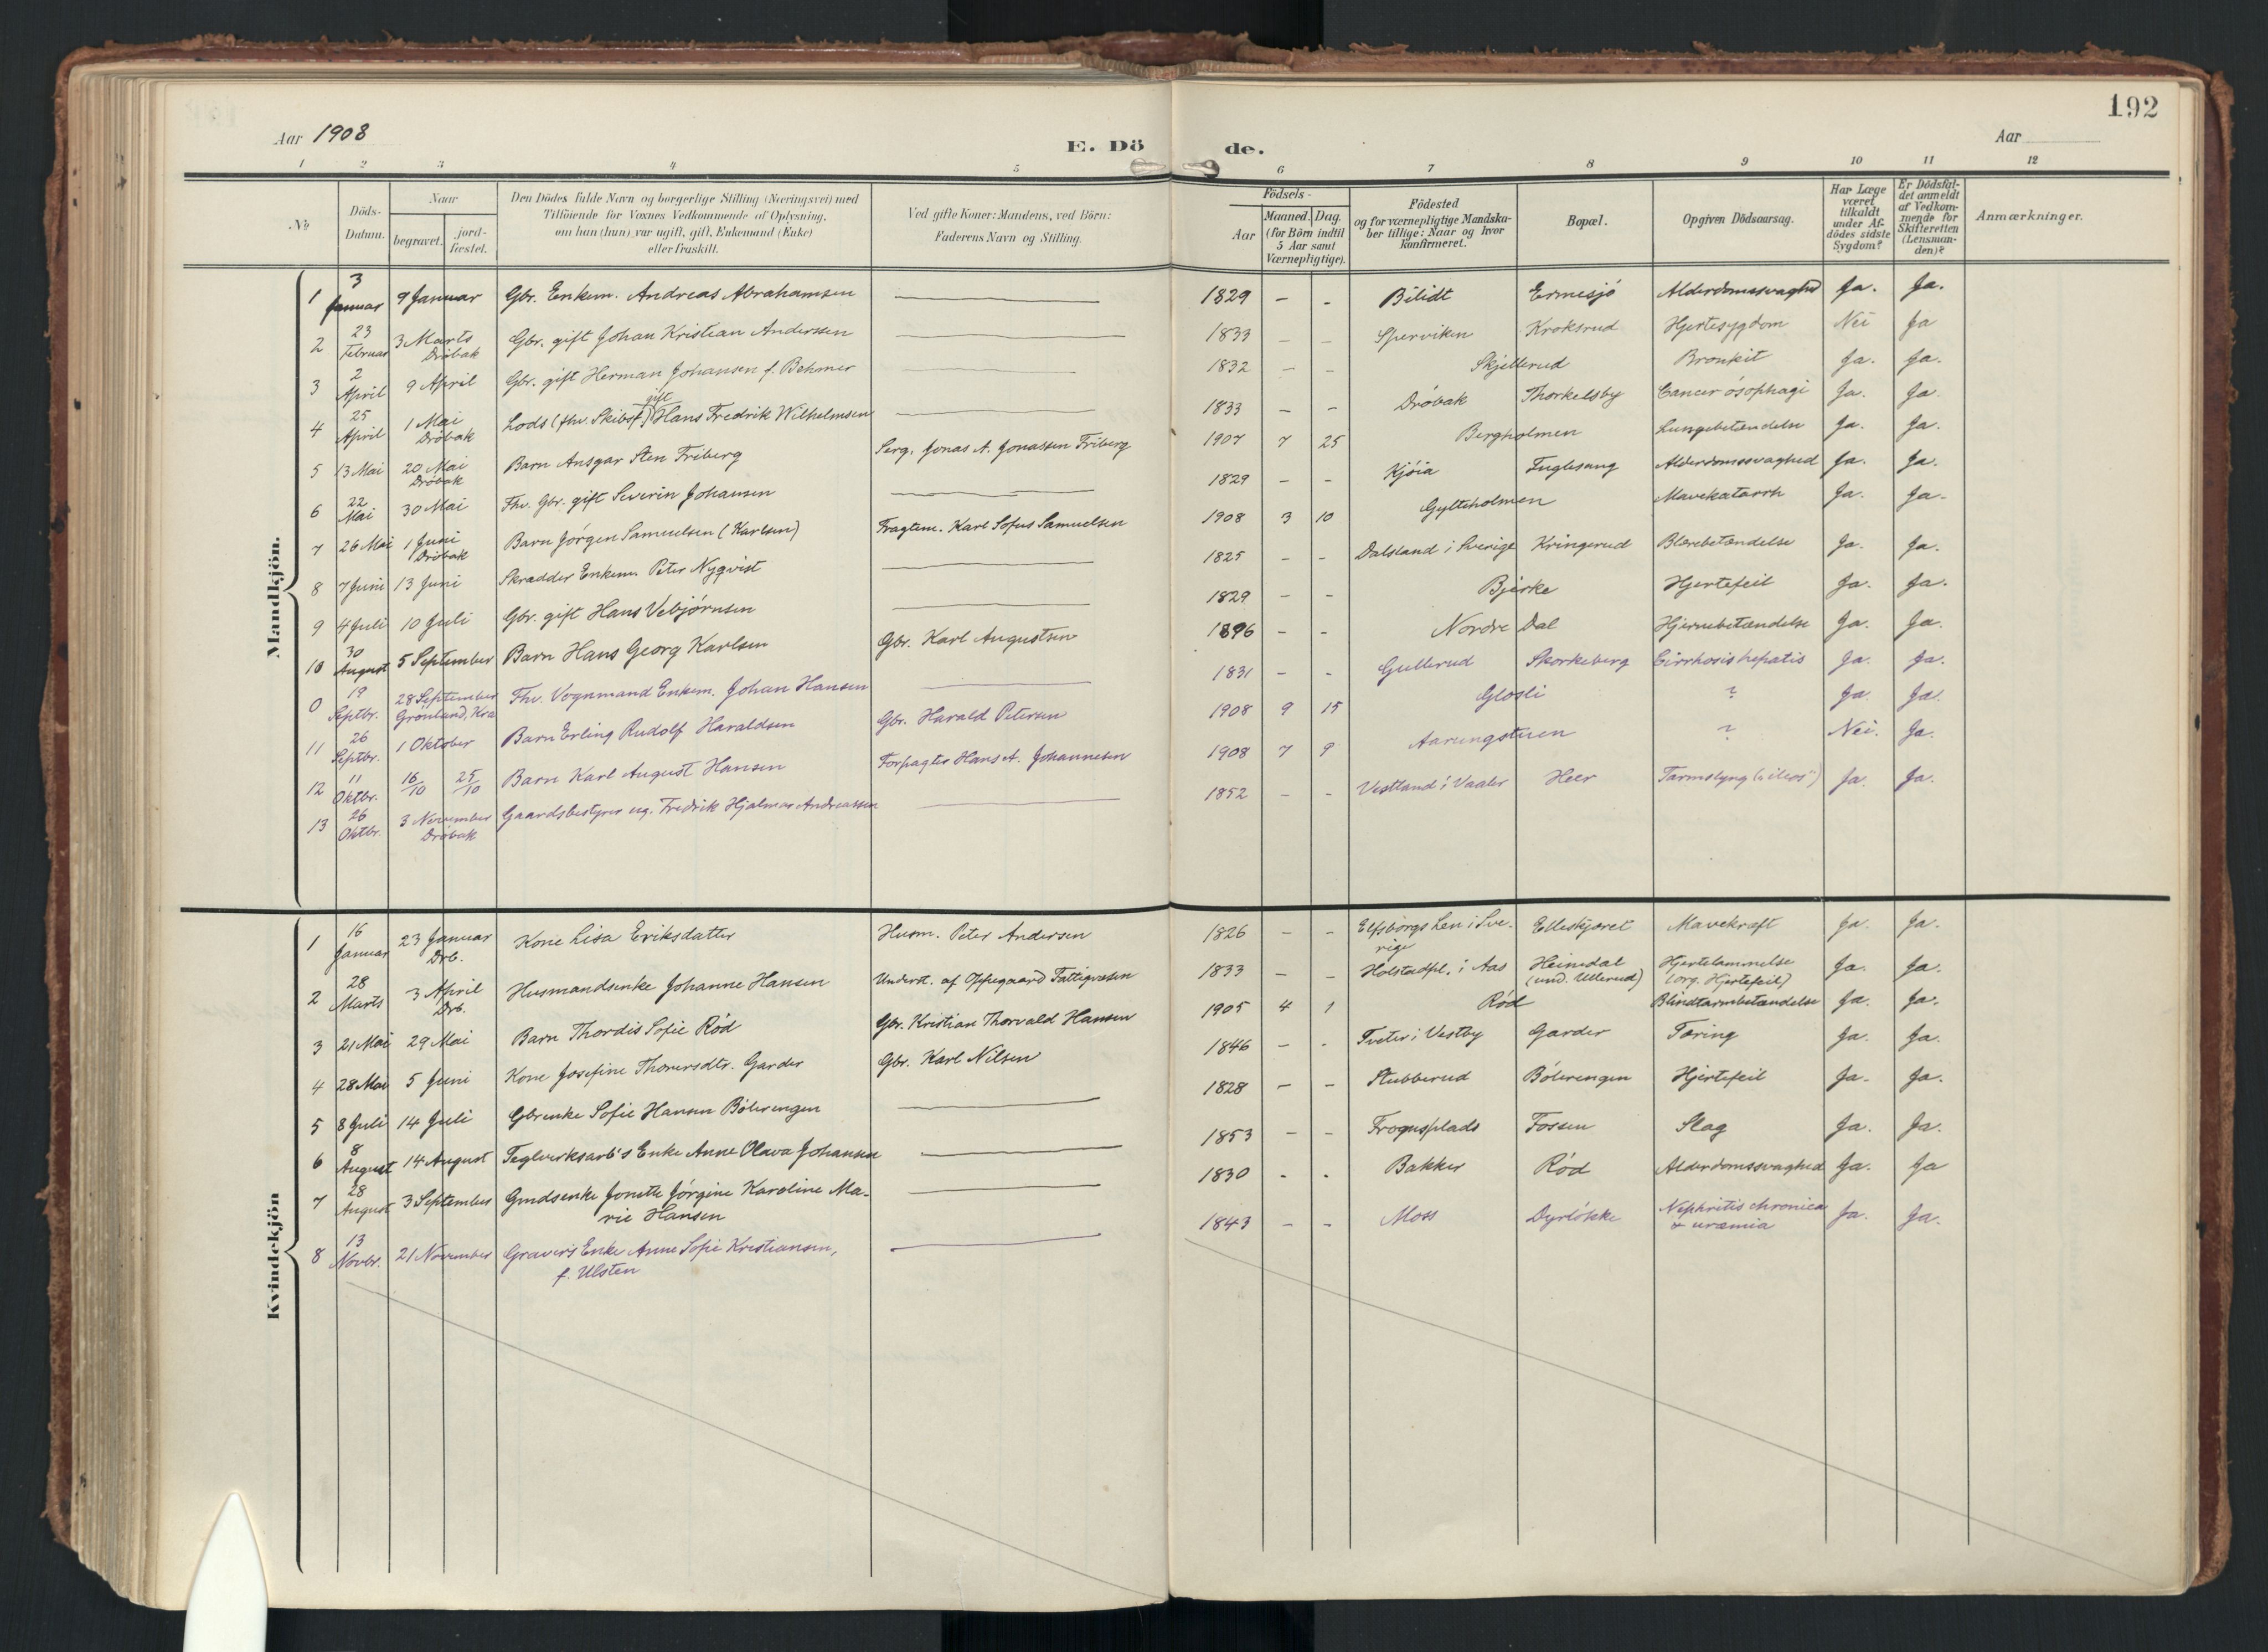 192
Aar 1908
E. Dö de.
Aar
1 2 3 4 5 6 7 8 9 10 11 12
No
Döds-Datum.
Naar
begravet.
jord-fæstet.
Den Dödes fulde Navn og borgerlige Stilling (Næringsvei) med
Tilföiende for Voxnes Vedkommende af Oplysning,
om han (hun) var ugift, gift, Enkemand (Enke)
eller fraskilt.
Ved gifte Koner: Mandens, ved Börn:
Faderens Navn og Stilling.
Födsels-
Aar
Maaned. Dag.
(for Börn indtil
5 Aar samt
Værnepligtige).
Födested
og for værnepligtige Mandska-
ber tillige: Naar og hvor
konfirmeret.
Bopæl.
Opgiven Dödsaarsag.
Har Læge
været
tilkaldt
under Af-
dödes sidste
Sygdom?
Er Dödsfal-
det anmeldt
af Vedkom-
mende for
Skifteretten
(Lensman-
den)?
Anmærkninger.
Mandkjön.
1 3 Januar 9 Januar Gbr. Enkem. Andreas Abrahamsen — 1829 - - Bilidt Ermesjö Alderdomssvaghed Ja. Ja.
2 23 Februar 3 Marts Dröbak Gbr. gift Johan Kristian Anderssen — 1833 - - Sperviken Kroksrud Hjertesygdom Nei Ja
3 2 April 9 April Gbr. gift Herman Johansen f. Behmer — 1832 - - Skjellerud Bronkit Ja. Ja.
4 25 April 1 Mai Dröbak Lods (fhv. Skibsf.) gift Hans Fredrik Wilhelmsen — 1833 - - Dröbak Thorkelsby Cancer ösophagi Ja. Ja.
5 13 Mai 20 Mai Dröbak Barn Ansgar Sten Friberg Serg. Jonas A. Jonassen Friberg 1907 7 25 Bergholmen Lungebetændelse Ja. Ja.
6 22 Mai 30 Mai Fhv. Gbr. gift Severin Johansen — 1829 - - Kjöia Fuglesang Alderdomssvaghed Ja. Ja.
7 26 Mai 1 Juni Dröbak Barn Jörgen Samuelsen (Karlsen) Fragtem. Karl Sofus Samuelsen 1908 3 10 Gylteholmen Mavekatarrh Ja. Ja.
8 7 Juni 13 Juni Skrædder Enkem. Peter Nyqvist — 1825 - - Dalsland i Sverige Kringerud Blærebetændelse Ja. Ja.
9 4 Juli 10 Juli Gbr. gift Hans Vebjörnsen — 1829 - - Bjerke Hjertefeil Ja. Ja.
10 30 August 5 September Barn Hans Georg Karlsen Gbr. Karl Augustsen 1896 - - Nordre Dal Hjernebetændelse Ja. Ja.
0 19 Septbr. 28 September Grönland, Kra Fhv. Vognmand Enkem. Johan Hansen — 1831 - - Gullerud Skorkeberg Cirrhosis hepatis Ja. Ja.
11 26 Septbr. 1 Oktober Barn Erling Rudolf Haraldsen Gbr. Harald Petersen 1908 9 15 Glosli ? Ja. Ja.
12 11 Oktbr. 16/10 25/10 Barn Karl August Hansen Forpagter Hans A. Johannesen 1908 7 9 Aarungstuen ? Nei. Ja.
13 26 Oktbr. 3 November Dröbak Gaardsbestyrer ug. Fredrik Hjalmar Andreassen — 1852 - - Vestland i Vaaler Heer Tarmslyng ("ileos") Ja. Ja.
Kvindekjön
1 16 Januar 23 Januar Drb. Kone Lisa Eriksdatter Husm. Peter Andersen 1826 - - Elfsborgs Len i Sve-
rige Elleskjæret Mavekræft Ja. Ja.
2 28 Marts 3 April Drb. Husmandsenke Johanne Hansen Underst. af Oppegaard Fattigvæsen 1833 - - Holstadpl. i Aas Heimdal (und. Ullerud) Hjertelammelse (org. Hjertefeil) Ja. Ja.
3 21 Mai 29 Mai Barn Thordis Sofie Röd Gbr. Kristian Thorvald Hansen 1905 4 1 Röd Blindtarmbetændelse Ja. Ja.
4 28 Mai 5 Juni Kone Josefine Thorersdtr. Garder Gbr. Karl Nilsen 1846 - - Tveter i Vestby Garder Tæring Ja. Ja.
5 8 Juli 14 Juli Gbrenke Sofie Hansen Bölerengen — 1828 - - Stubberud Bölerengen Hjertefeil Ja. Ja.
6 8 August 14 August Teglverksarb's Enke Anne Olava Johansen — 1853 - - Frognsplads Fossen Slag Ja. Ja.
7 28 August 3 September Gmdsenke Jonette Jörgine Karoline Ma-
rie Hansen — 1830 - - Bakker Röd Alderdomssvaghed Ja. Ja
8 13 Novbr. 21 November Graver's Enke Anne Sofie Kristiansen,
f. Ulsten — 1843 - - Moss Dyrlökke Nephritis chronica
& uræmia Ja. Ja.